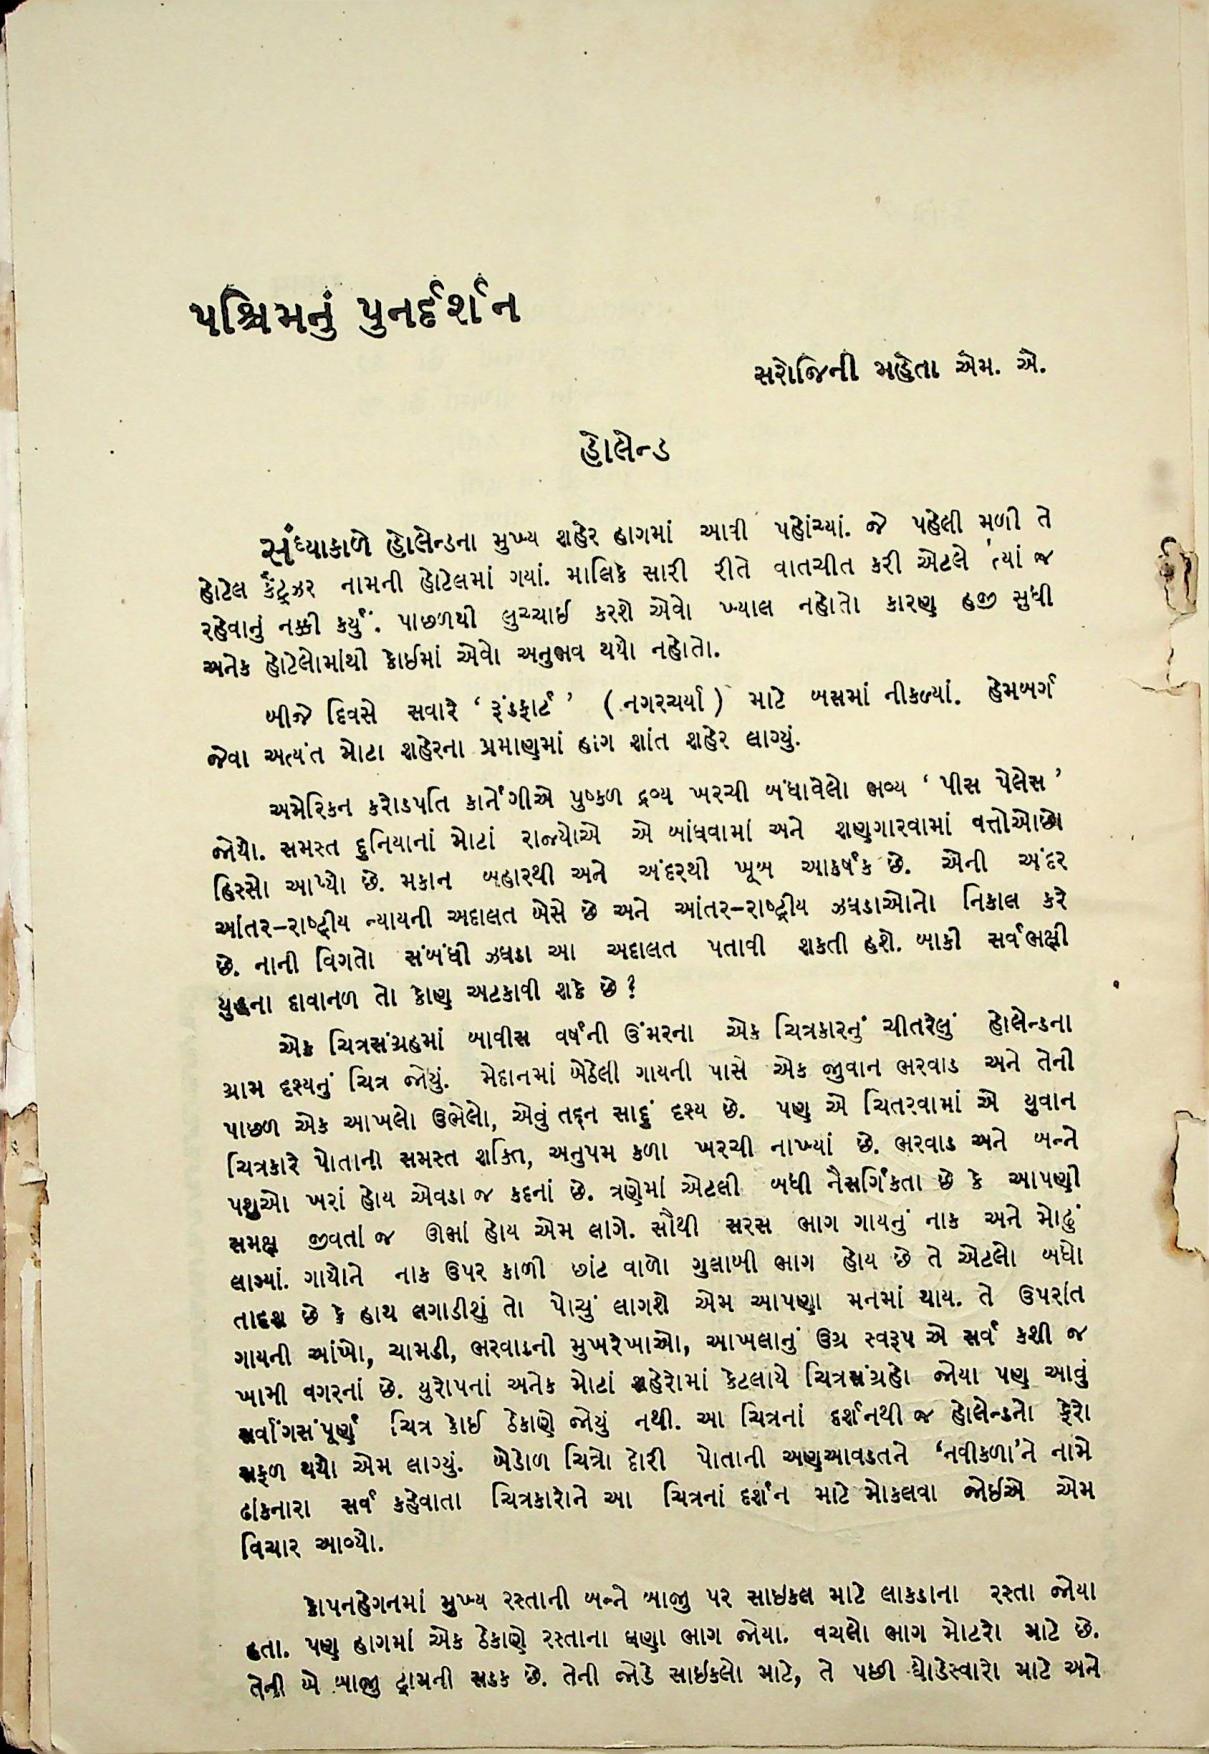 પશ્ચિમનું પુનર્દર્શન
સરોજિની મહેતા એમ. એ.
હોલેન્ડ
સંધ્યાકાળે હોલેન્ડના મુખ્ય શહેર હાગમાં આવી પહોંચ્યાં. જે પહેલી મળી તે
હોટેલ કૅંટ્ઝર નામની હોટેલમાં ગયાં. માલિકે સારી રીતે વાતચીત કરી એટલે ત્યાં જ
રહેવાનું નક્કી કર્યું. પાછળથી લુચ્ચાઈ કરશે એવો ખ્યાલ નહોતો કારણ હજી સુધી
અનેક હોટેલોમાંથી કોઈમાં એવો અનુભવ થયો નહોતો.
બીજે દિવસે સવારે ‘ રૂંડફાર્ટ ’ ( નગરચર્યા ) માટે બસમાં નીકળ્યાં. હેમબર્ગ
જેવા અત્યંત મોટા શહેરના પ્રમાણમાં હાગ શાંત શહેર લાગ્યું.
અમેરિકન કરોડપતિ કાર્નેગીએ પુષ્કળ દ્રવ્ય ખરચી બંધાવેલો ભવ્ય ‘ પીસ પેલેસ ’
જોયો. સમસ્ત દુનિયાનાં મોટાં રાજ્યોએ એ બાંધવામાં અને શણગારવામાં વત્તોઓછો
હિસ્સો આપ્યો છે. મકાન બહારથી અને અંદરથી ખૂબ આકર્ષક છે. એની અંદર
આંતર-રાષ્ટ્રીય ન્યાયની અદાલત બેસે છે અને આંતર-રાષ્ટ્રીય ઝઘડાઓનો નિકાલ કરે
છે. નાની વિગતો સંબંધી ઝઘડા આ અદાલત પતાવી શકતી હશે. બાકી સર્વભક્ષી
યુદ્ધના દાવાનળ તો કોણ અટકાવી શકે છે?
એક ચિત્રસંગ્રહમાં બાવીસ વર્ષની ઉંમરના એક ચિત્રકારનું ચીતરેલું હોલેન્ડના
ગ્રામ દશ્યનું ચિત્ર જોયું. મેદાનમાં બેઠેલી ગાયની પાસે એક જુવાન ભરવાડ અને તેની
પાછળ એક આખલો ઉભેલો, એવું તદ્દન સાદું દશ્ય છે. પણ એ ચિતરવામાં એ યુવાન
ચિત્રકારે પોતાની સમસ્ત શક્તિ, અનુપમ કળા ખરચી નાખ્યાં છે. ભરવાડ અને બન્ને
પશુઓ ખરાં હોય એવડા જ કદનાં છે. ત્રણેમાં એટલી બધી નૈસર્ગિકતા છે કે આપણી
સમક્ષ જીવતાં જ ઊભાં હોય એમ લાગે. સૌથી સરસ ભાગ ગાયનું નાક અને મોઢું
લાગ્યાં. ગાયોને નાક ઉપર કાળી છાંટ વાળો ગુલાબી ભાગ હોય છે તે એટલો બધો
તાદશ છે કે હાથ લગાડીશું તો પોચું લાગશે એમ આપણા મનમાં થાય. તે ઉપરાંત
ગાયની આંખો, ચામડી, ભરવાડની મુખરેખાઓ, આખલાનું ઉગ્ર સ્વરૂપ એ સર્વ કશી જ
ખામી વગરનાં છે. યુરોપનાં અનેક મોટાં શહેરોમાં કેટલાયે ચિત્રસંગ્રહો જોયા પણ આવું
સર્વાંગસંપૂર્ણ ચિત્ર કોઈ ઠેકાણે જોયું નથી. આ ચિત્રનાં દર્શનથી જ હોલેન્ડનો ફેરો
સફળ થયો એમ લાગ્યું. બેડોળ ચિત્રો દોરી પોતાની અણઆવડતને ‘નવીકળા’ને નામે
ઢાંકનારા સર્વ કહેવાતા ચિત્રકારોને આ ચિત્રનાં દર્શન માટે મોકલવા જોઈએ એમ
વિચાર આવ્યો.
કોપનહેગનમાં મુખ્ય રસ્તાની બન્ને બાજુ પર સાઇકલ માટે લાકડાના રસ્તા જોયા
હતા. પણ હાગમાં એક ઠેકાણે રસ્તાના ઘણા ભાગ જોયા. વચલો ભાગ મોટરો માટે છે.
તેની બે બાજુ ટ્રામની સડક છે. તેની જોડે સાઇકલો માટે, તે પછી ઘોડેસ્વારો માટે અને